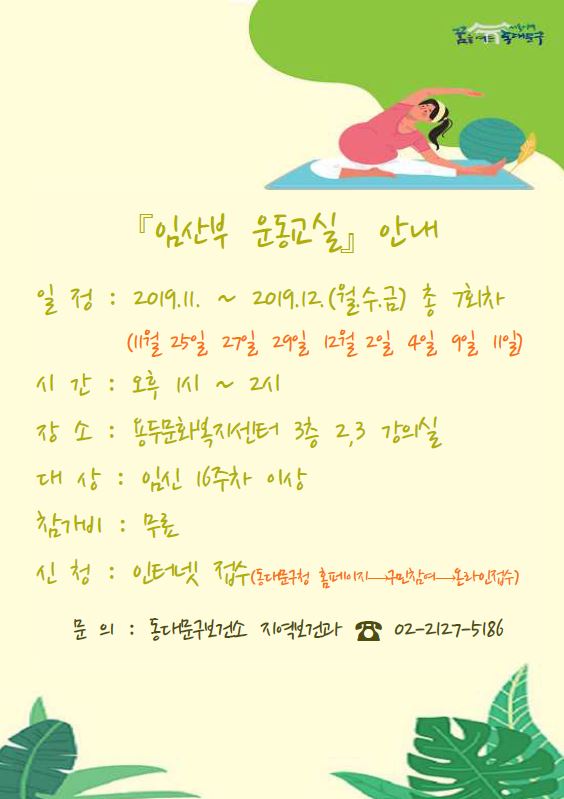 꿈을 여는 동대문구
『임산부 운동교실』 안내
일 정 : 2019.11. ~ 2019.12.(월.수.금) 총 7회차
(11월 25일 27일 29일 12월 2일 4일 9일 11일)
시 간 : 오후 1시 ~ 2시
장 소 : 용두문화복지센터 3층 2,3 강의실
대 상 : 임신 16주차 이상
참가비 : 무료
신 청 : 인터넷 접수(동대문구청 홈페이지→구민참여→온라인접수)
문 의 : 동대문구보건소 지역보건과 ☎ 02-2127-5186